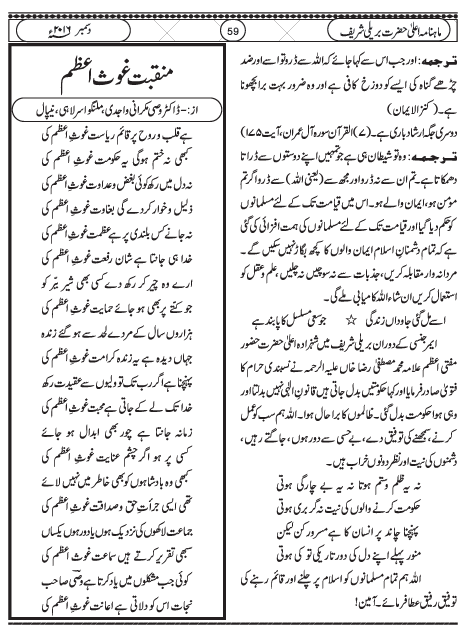 ماہنامہ اعلیٰ حضرت بریلی شریف
59
دسمبر ۲۰۱۶ء
ترجمہ: اور جب اس سے کہا جائے کہ اللہ سے ڈرو تو اسے اور ضد
چڑھے گناہ کی ایسے کو دوزخ کافی ہے اور وہ ضرور بہت برا بچھونا
ہے۔ (کنز الایمان)
دوسری جگہ ارشاد باری ہے۔ (۷) القرآن سورہ آل عمران، آیت ۱۷۵)
ترجمہ: وہ تو شیطان ہی ہے جو تمہیں اپنے دوستوں سے ڈراتا
دھمکاتا ہے۔ تم ان سے نہ ڈرو اور مجھ سے (یعنی اللہ) سے ڈرو اگر تم
مؤمن ہو، ایمان والے ہو۔ اس میں قیامت تک کے لئے مسلمانوں
کو حکم دیا گیا اور قیامت تک کے لئے مسلمانوں کی ہمت افزائی کی گئی
ہے کہ تمام دشمنان اسلام ایمان والوں کا کچھ بگاڑ نہیں سکیں گے۔
مردانہ وار مقابلہ کریں، جذبات سے نہ سوچیں نہ چلیں، علم و عقل کو
استعمال کریں ان شاء اللہ کامیابی ملے گی۔
اسے مل گئی جاوداں زندگی ☆ جو سعی مسلسل کا پابند ہے
ایمرجنسی کے دوران بریلی شریف میں شہزادہ اعلیٰ حضرت حضور
مفتی اعظم علامہ محمد مصطفیٰ رضا خاں علیہ الرحمہ نے نسبندی حرام کا
فتویٰ صادر فرمایا اور کہا حکومتیں بدل جاتی ہیں قانون الٰہی نہیں بدلتا اور
وہی ہوا حکومت بدل گئی۔ ظالموں کا برا حال ہوا۔ اللہ ہم سب کو عمل
کرنے، سمجھنے کی توفیق دے، بے حسی سے دور ہوں، جاگتے رہیں،
دشمنوں کی نیت اور نظر دونوں خراب ہیں۔
نہ یہ ظلم و ستم ہوتا نہ یہ بے چارگی ہوتی
حکومت کرنے والوں کی نیت نہ گر بری ہوتی
پہنچنا چاند پر انساں کا ہے مسرور کن لیکن
منور پہلے اپنے دل کی دور تاریکی تو کی ہوتی
اللہ ہم تمام مسلمانوں کو اسلام پر چلنے اور قائم رہنے کی
توفیق رفیق عطا فرمائے۔ آمین!
منقبت غوث اعظم
از:- ڈاکٹر وصی مکرانی واجدی، ملنگوا سرلاہی، نیپال
ہے قلب و روح پر قائم ریاست غوث اعظم کی
کبھی نہ ختم ہوگی یہ حکومت غوث اعظم کی
نہ دل میں رکھ کوئی بغض و عداوت غوث اعظم کی
ذلیل و خوار کر دے گی بغاوت غوث اعظم کی
نہ جانے کس بلندی پر ہے عظمت غوث اعظم کی
خدا ہی جانتا ہے شان رفعت غوث اعظم کی
ارے وہ چیر کر رکھ دے کسی بھی شیر ببر کو
جو کتے پر بھی ہو جائے حمایت غوث اعظم کی
ہزاروں سال کے مردے لحد سے ہو گئے زندہ
جہاں دیدہ ہے یہ زندہ کرامت غوث اعظم کی
پہنچنا ہے اگر رب تک تو ولیوں سے عقیدت رکھ
خدا تک لے کے جاتی ہے محبت غوث اعظم کی
زمانہ جانتا ہے چور بھی ابدال ہو جائے
کسی پر ہو اگر چشم عنایت غوث اعظم کی
کبھی وہ بادشاہوں کو بھی خاطر میں نہیں لائے
تھی ایسی جرأت حق و صداقت غوث اعظم کی
جماعت لاکھوں کی نزدیک ہوں یا دور ہوں یکساں
سبھی تقریر کرتے ہیں سماعت غوث اعظم کی
کوئی جب مشکلوں میں یاد کرتا ہے وصی صاحب
نجات اس کو دلاتی ہے اعانت غوث اعظم کی